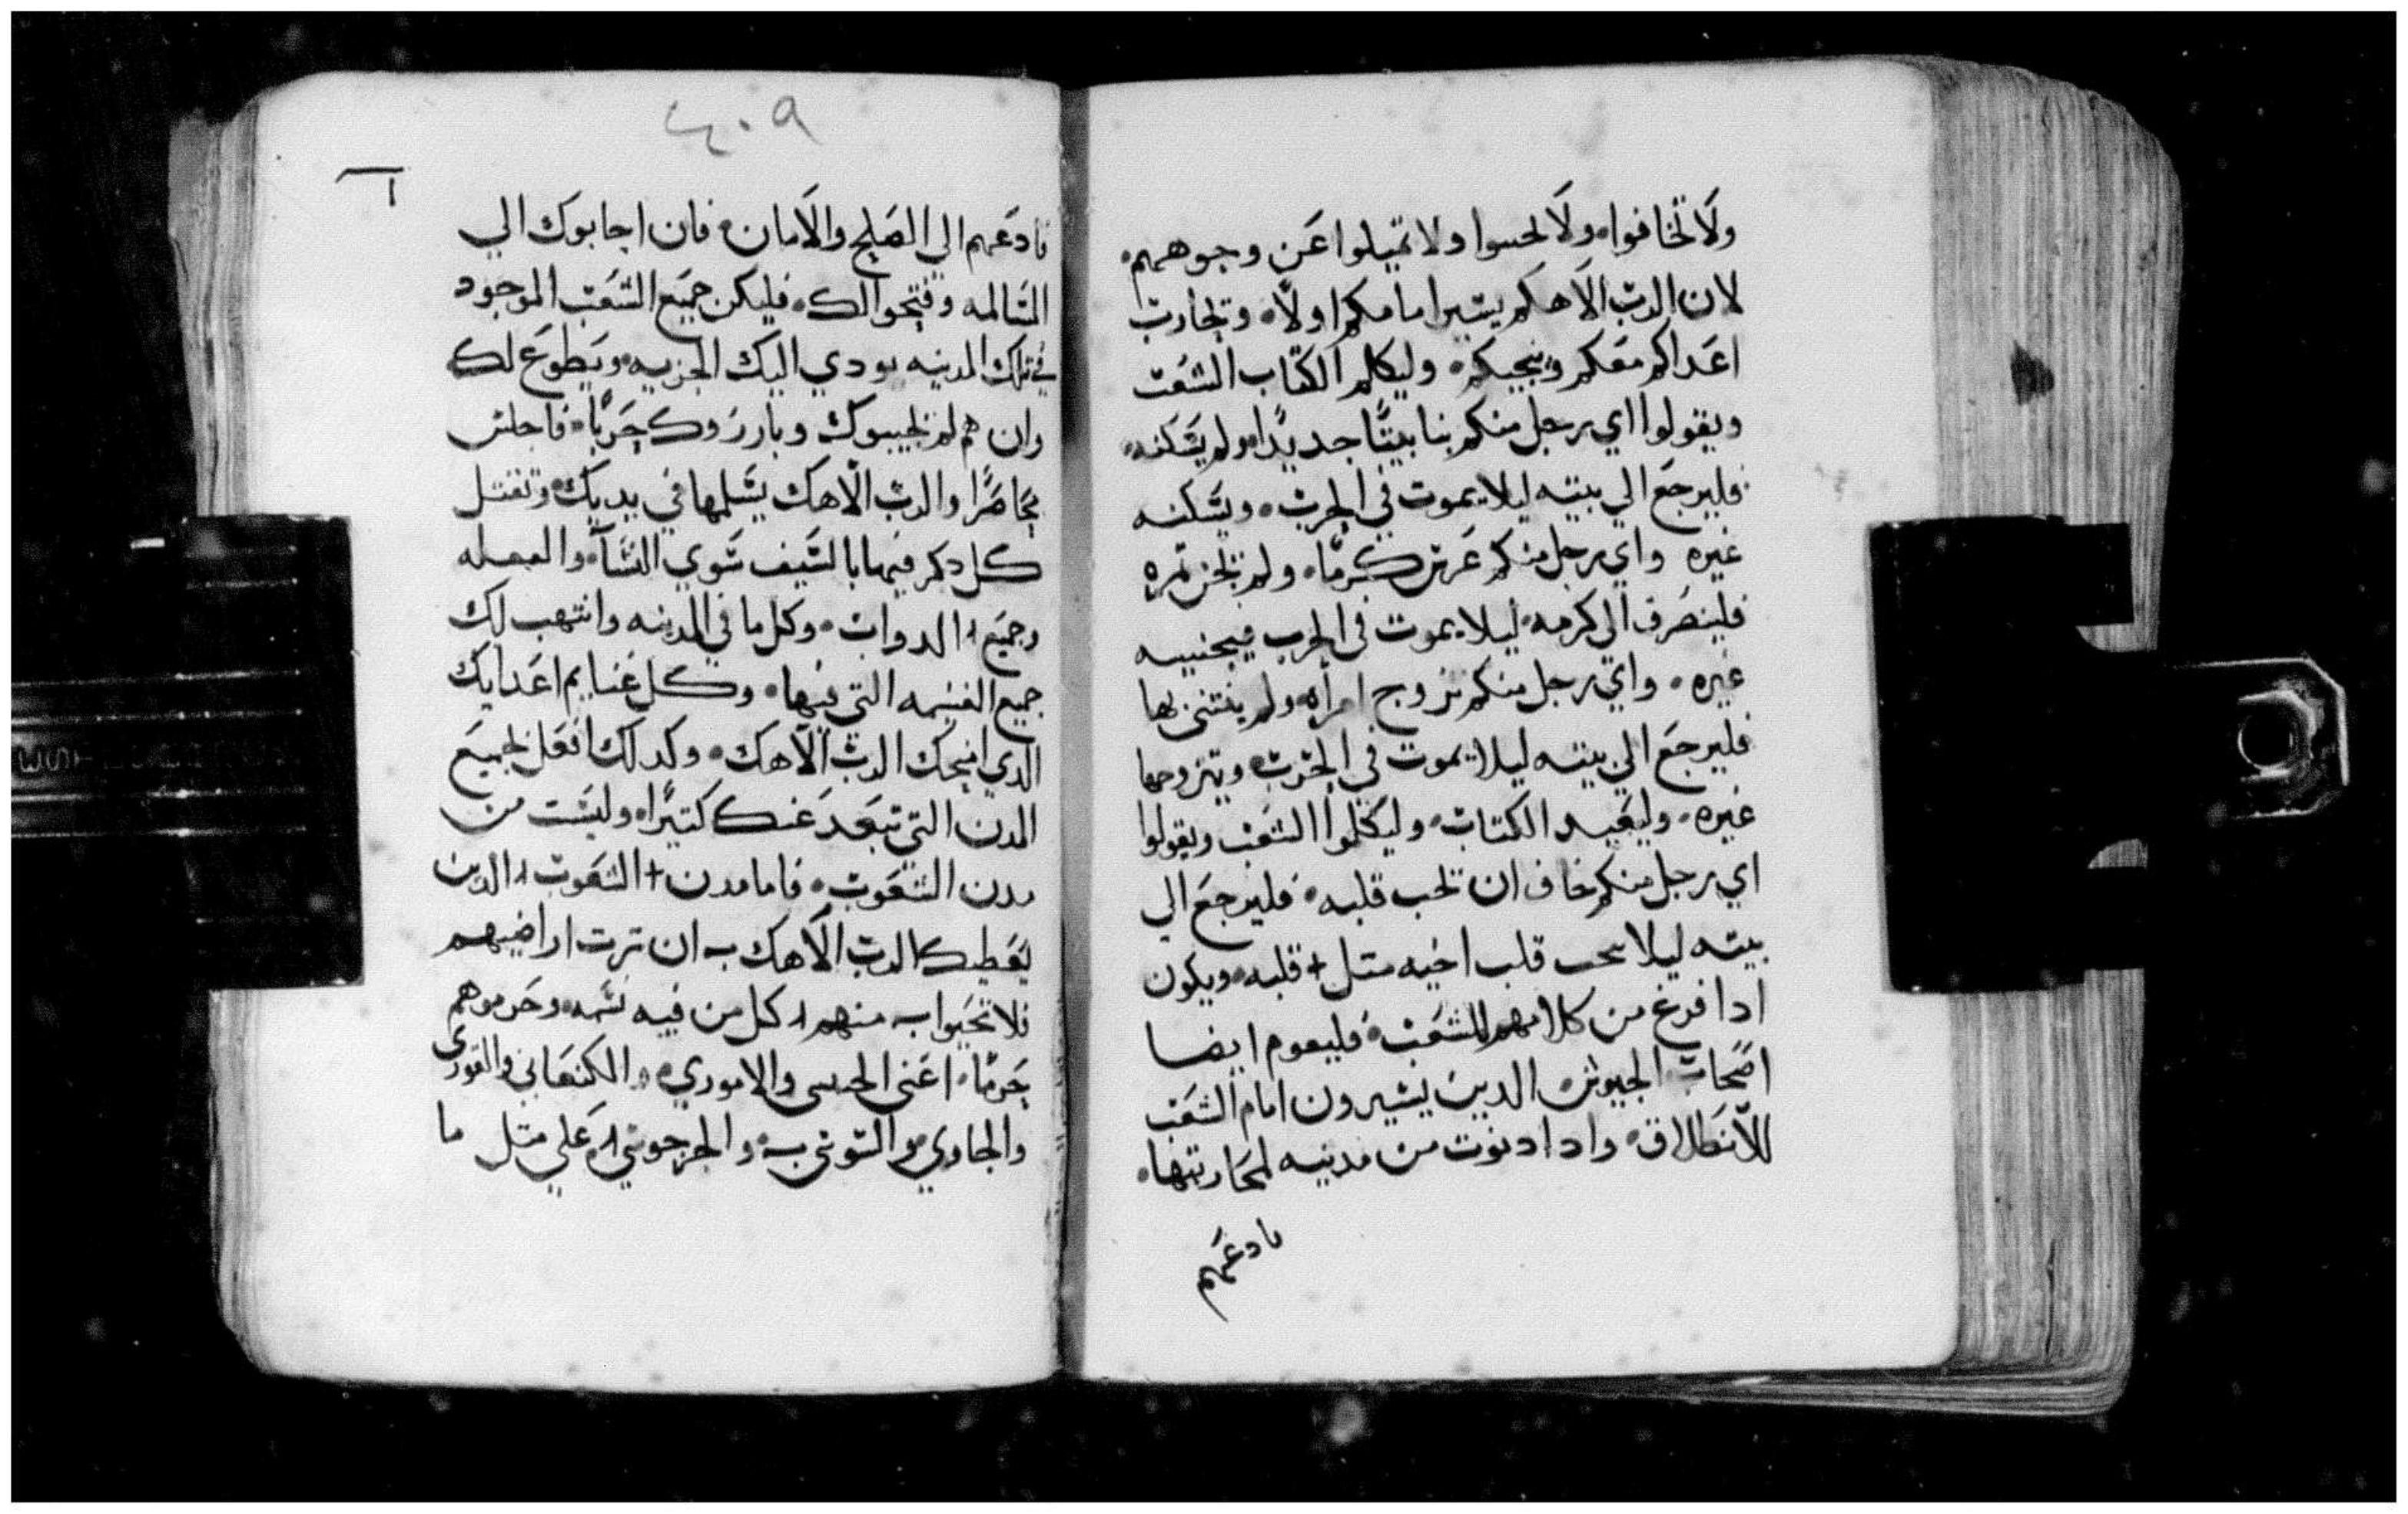 ولا تخافوا. ولا تحسوا ولا تميلوا عن وجوههم.
لان الرب الاهكم يسير امامكم اولًا. وتحارب
اعداكم معكم وينجيكم. وليكلم الكتاب الشعب
ويقولوا اي رجل منكم بنا بيتًا جديدًا. ولم يسكنه.
فليرجع الي بيته ليلا يموت في الحرب. ويسكنه
غيره واي رجل منكم غرس كرمًا. ولم يجن ثمره
فلينصرف الي كرمه. ليلا يموت في الحرب فيجنيه
غيره. واي رجل منكم تزوج امراه ولم يفتني بها
فليرجع الي بيته ليلا يموت في الحرب وتيزوجها
غيره. وليعيد الكتاب. وليكلموا الشعب ويقولوا
اي رجل منكم خاف ان تجب قلبه. فليرجع الي
بيته ليلا يجب قلب اخيه متل + قلبه. ويكون
ادا فرغ من كلامهم للشعب. فليقوم ايضا
اصحاب الجيوش. الدين يسيرون امام الشعب
للانطلاق. وادا دنوت من مدينه لمحاربتها.
فادعهم
٤٠٩
فادعهم الي الصلح والامان. فان اجابوك الي
المسالمه وفتحوا لك. فليكن جميع الشعب الموجود
في تلك المدينه يودي اليك الجزيه. ويطوع لك
وان هم لم يجيبوك وبارزوك حربًا. فاجلس
محاصرًا والرب الاهك يسلمها في يديك. وتقتل
كل دكر فيها بالسيف سوي النسا. والعجله
وجميع الدواب. وكل ما في المدينه وانتهب لك
جميع الغنيمه التي فيها. وكل غنايم اعدايك
الدي انجحك الرب الاهك. وكدلك افعل بجميع
المدن التي تبعد عنك كتيرًا. وليست من
مدن الشعوب. فاما مدن + الشعوب الدين
يعطيك الرب الاهك ب ان ترت اراضيهم
فلا تحيوا ب منهم كل من فيه نسمه. وحرموهم
حرمًا. اعني الحيسي والاموري. والكنعاني والفوري
والجاوي. واليبوسي ب والجرجوسي. علي متل ما